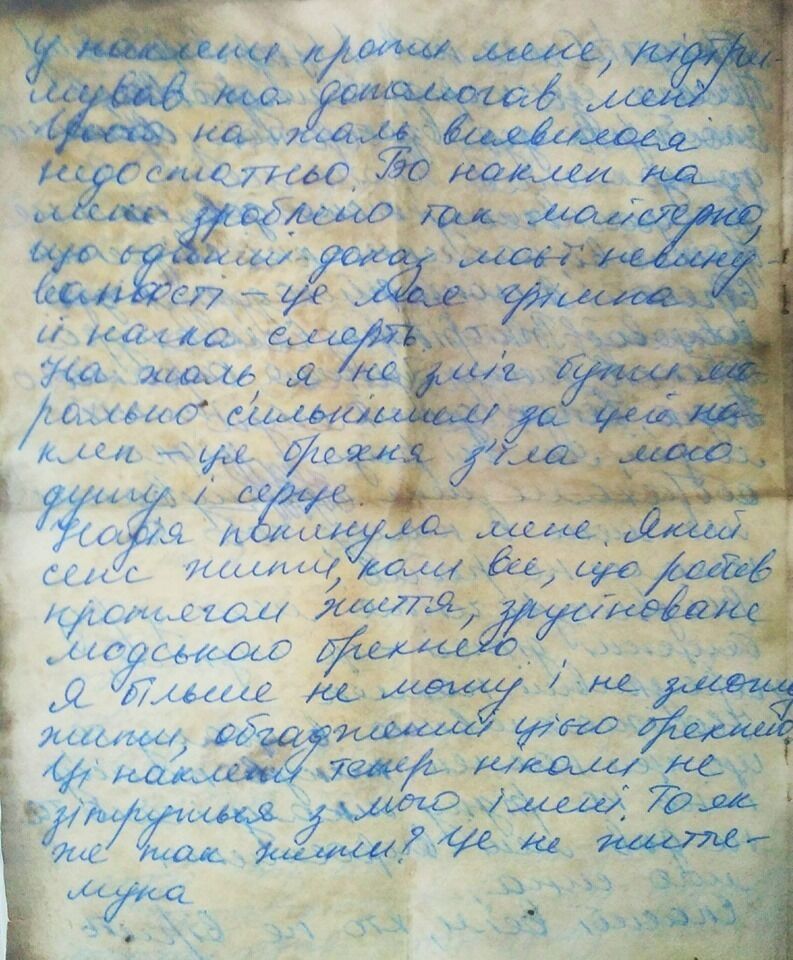 у наклепи проти мене, підтри-
мував та допомагав мені
на жаль виявилося
недостатньо. Бо наклеп на
мене зроблено так майстерно,
що єдиний доказ моєї невину-
ватості – це моя
й нагла смерть.
На жаль, я не зміг бути мо-
рально сильнішим за цей на-
клеп – ця брехня з'їла мою
душу і серце.
Надія покинула мене. Який
сенс жити, коли все, що робив
протягом життя, зруйноване
людською брехнею.
Я більше не можу і не зможу
жити, обгаджений цією брехнею.
Ці наклепи тепер ніколи не
зітруться з мого імені. То як
же так жити? Це не життє-
мука